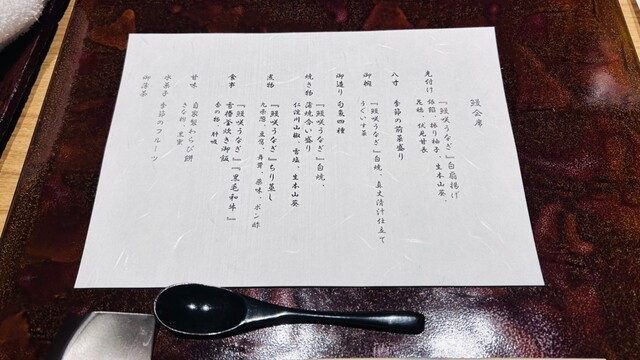 鰻会席
先付け 『鰻咲うなぎ』白扇揚げ
銀餡、振り柚子、生本山葵、
花穂、伏見甘長
八寸 季節の前菜盛り
御椀 『鰻咲うなぎ』白焼、真丈清汁仕立て
うぐいす菜
御造り 旬魚四種
焼き物 『鰻咲うなぎ』白焼、
蒲焼合い盛り
仁淀川山椒、雪塩、生本山葵
煮物 『鰻咲うなぎ』ちり蒸し
九条葱、豆腐、舞茸、薬味、ポン酢
食事 『鰻咲うなぎ』『黒毛和牛』
羽釜炊き御飯
香の物、肝吸
甘味 自家製わらび餅
きな粉、黒蜜
水菓子 季節のフルーツ
御薄茶